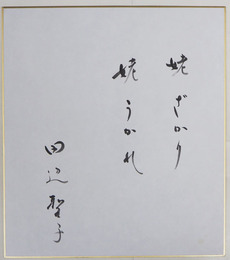 姥ざかり
姥うかれ
田辺聖子